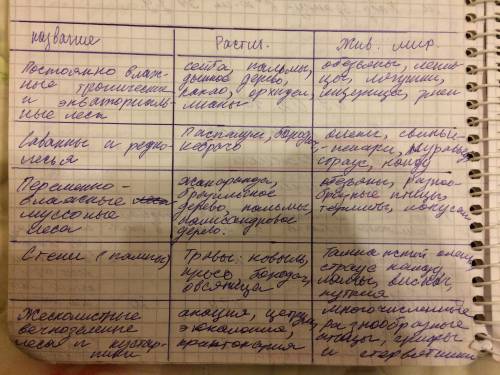 название
Растит.
Жив. мир.
Постоянно влаж-
ные тропические
и экваториаль-
ные леса
сейба, пальмы,
дынное дерево,
какао, орхидеи,
лианы
обезьяны, лени-
цы, лягушки,
ящерицы, змеи
Саванны и редко-
лесья
кебрачо
олени, свиньи-
-пекари, муравьед,
страус, нанду
Переменно-
влажные леса
муссоные
леса
жакаранда,
бразильское
дерево, пальмы,
палисандровое
дерево.
обезьяны, разно-
образные птицы,
термиты
Степи (пампы)
Травы: ковыль,
просо, бородач,
овсяница
олень,
страус нанду,
ламы, вискаи,
нутрия
Жесколистные
вечнозелёные
леса и кустар-
ники
акация,
эвкалипты,
многочисленные
разнообразные
птицы, грифы
и стервятники